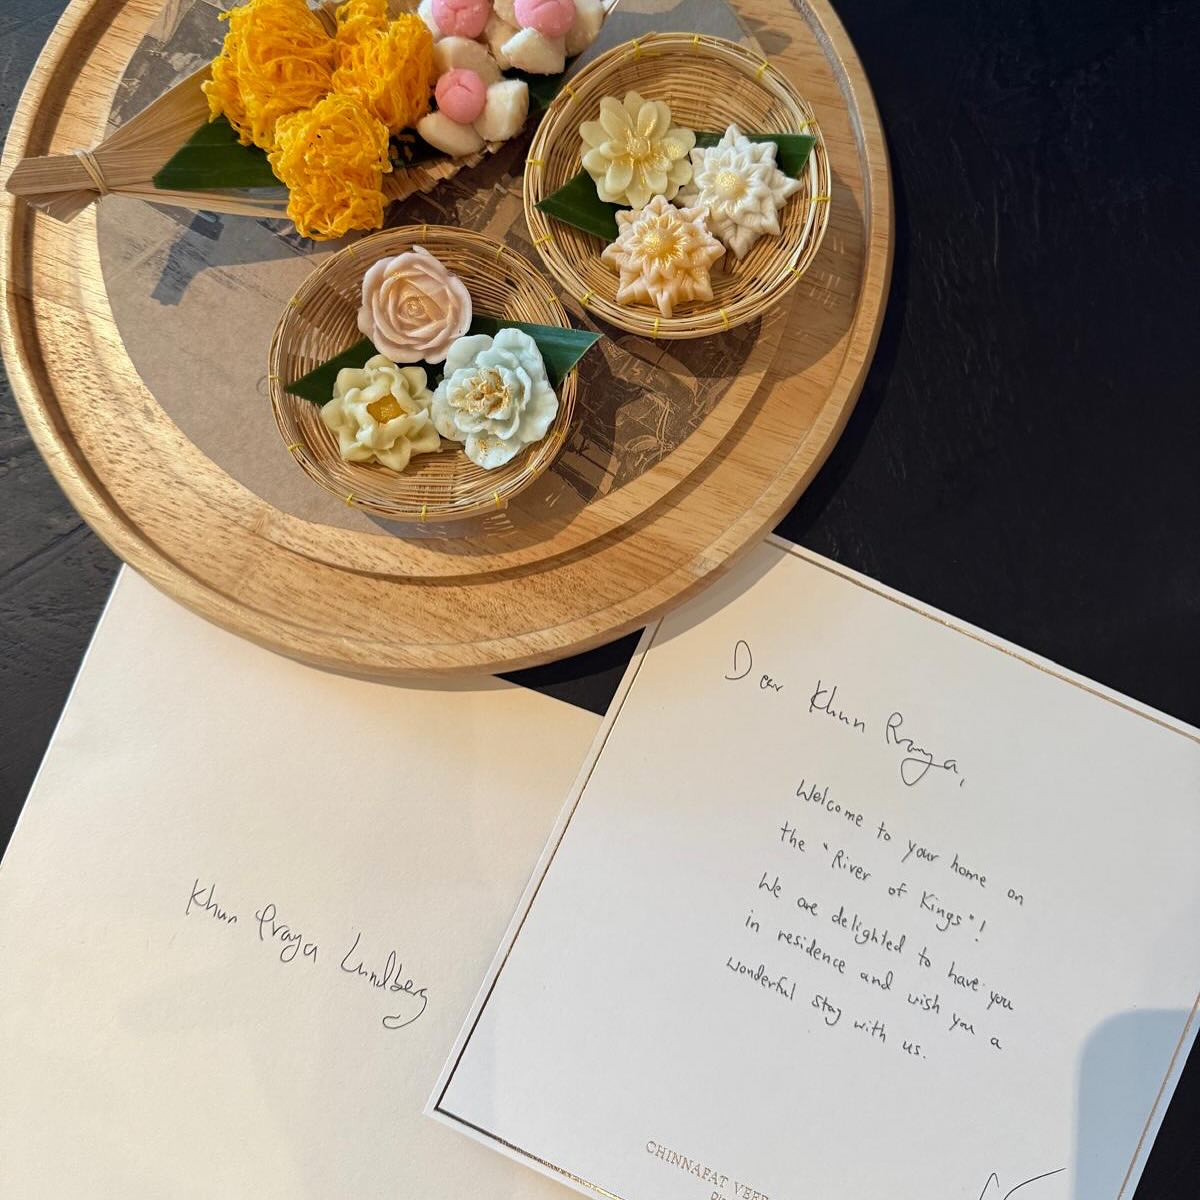 Khun Praya Lundberg
Dear Khun Praya,
Welcome to your home on
the "River of Kings"!
We are delighted to have you
in residence and wish you a
wonderful stay with us.
CHINNAPAT